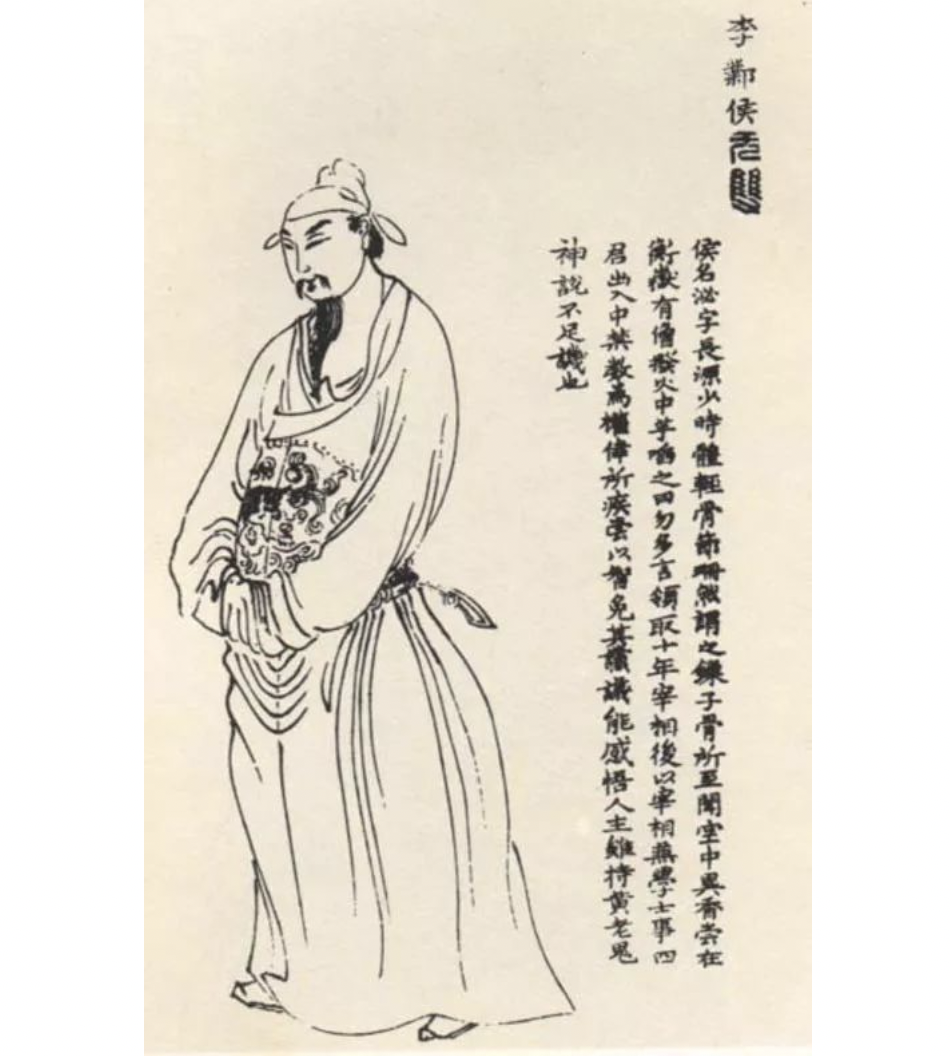 李鄴侯無雙
侯名泌字長源少時體輕骨節珊然謂之鏁子骨所至聞空中異香嘗在
衡嶽有僧撥火中芋啗之曰勿多言領取十年宰相後以宰相兼學士事四
君出入中禁數為權倖所疾嘗以智免其讜議能感悟人主雖持黄老鬼
神說不足譏也